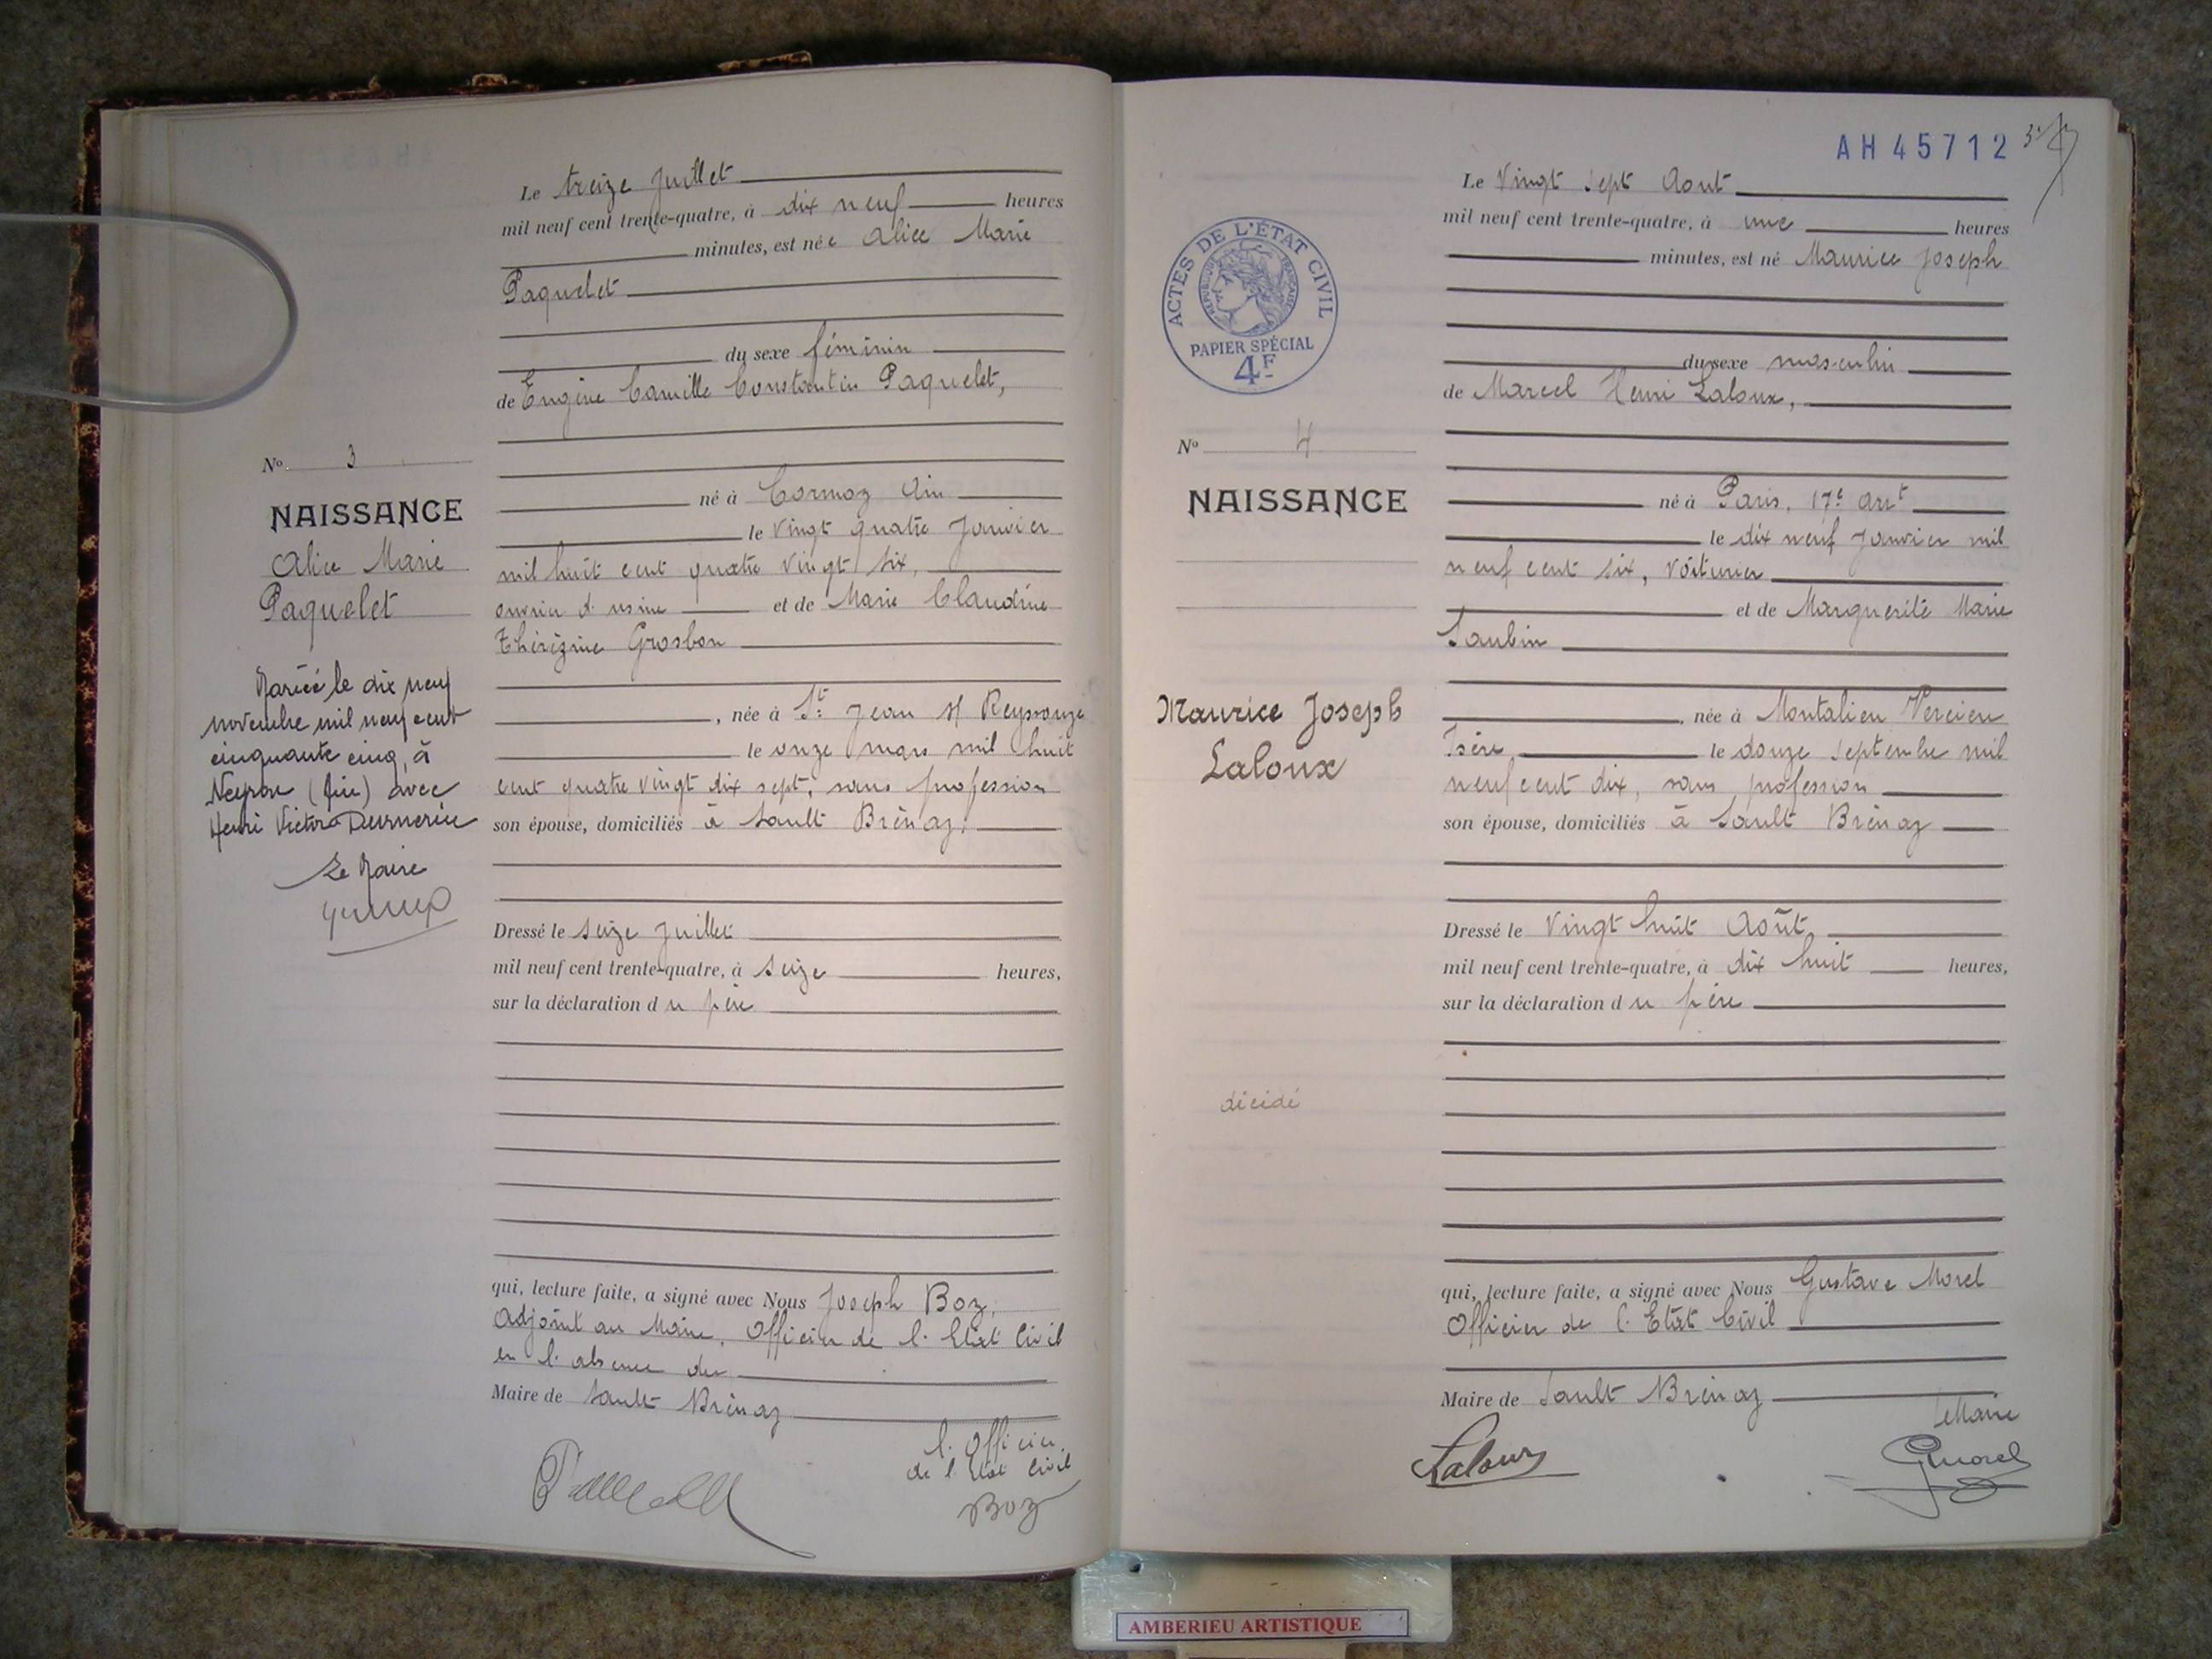 Le treize Juillet
mil neuf cent trente-quatre, à dix neuf heures
minutes, est née Alice Marie
Paquelet
du sexe féminin
de Eugène Camille Constantin Paquelet,
né à Cormoz Ain
le vingt quatre Janvier
mil huit cent quatre vingt six,
ouvrier d'usine et de Marie Claudine
Thérézine Grosbon
, née à St Jean s/ Reyssouze
le onze mars mil huit
cent quatre vingt dix sept, sans profession
son épouse, domiciliés à Sault Brénaz,
Dressé le seize Juillet
mil neuf cent trente-quatre, à seize heures,
sur la déclaration du père
qui, lecture faite, a signé avec Nous Joseph Boz,
Adjoint au Maire, Officier de l'Etat Civil
en l'absence du
Maire de Sault Brénaz
l'Officier
de l'Etat Civil
Boz
No 3
NAISSANCE
Alice Marie
Paquelet
Mariée le dix neuf
novembre mil neuf cent
cinquante cinq, à
Neyron (Ain) avec
Henri Victor
Le Maire
AH 45712
ACTES DE L'ÉTAT CIVIL
RÉPUBLIQUE FRANÇAISE
PAPIER SPÉCIAL
4F
No 4
NAISSANCE
Maurice Joseph
Laloux
décédé
Le Vingt sept Aout
mil neuf cent trente-quatre, à une heures
minutes, est né Maurice Joseph
du sexe masculin
de Marcel Henri Laloux,
né à Paris, 17e arrt
le dix neuf Janvier mil
neuf cent six, voiturier
et de Marguerite Marie
Saubin
, née à Montalieu Vercieu
Isère le douze septembre mil
neuf cent dix, sans profession
son épouse, domiciliés à Sault Brénaz
Dressé le Vingt huit Août,
mil neuf cent trente-quatre, à dix huit heures,
sur la déclaration du père
qui, lecture faite, a signé avec Nous Gustave Morel
Officier de l'Etat Civil
Maire de Sault Brénaz
Le Maire
Laloux
GMorel
AMBERIEU ARTISTIQUE